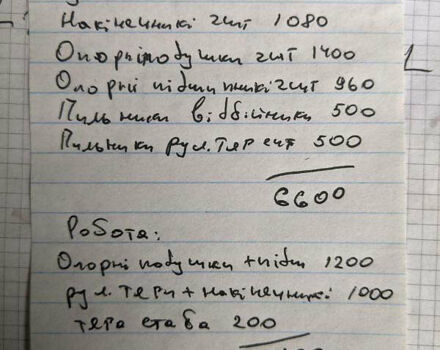 Накінечники 2шт 1080
Опорні подушки 2шт 1400
Опорні підшипники 2шт 960
Пильники відбійники 500
Пильники рул. тяг 2шт 500
6600
Робота:
Опорні подушки + підш 1200
рул. тяги + накінечники 1000
тяга стаба 200